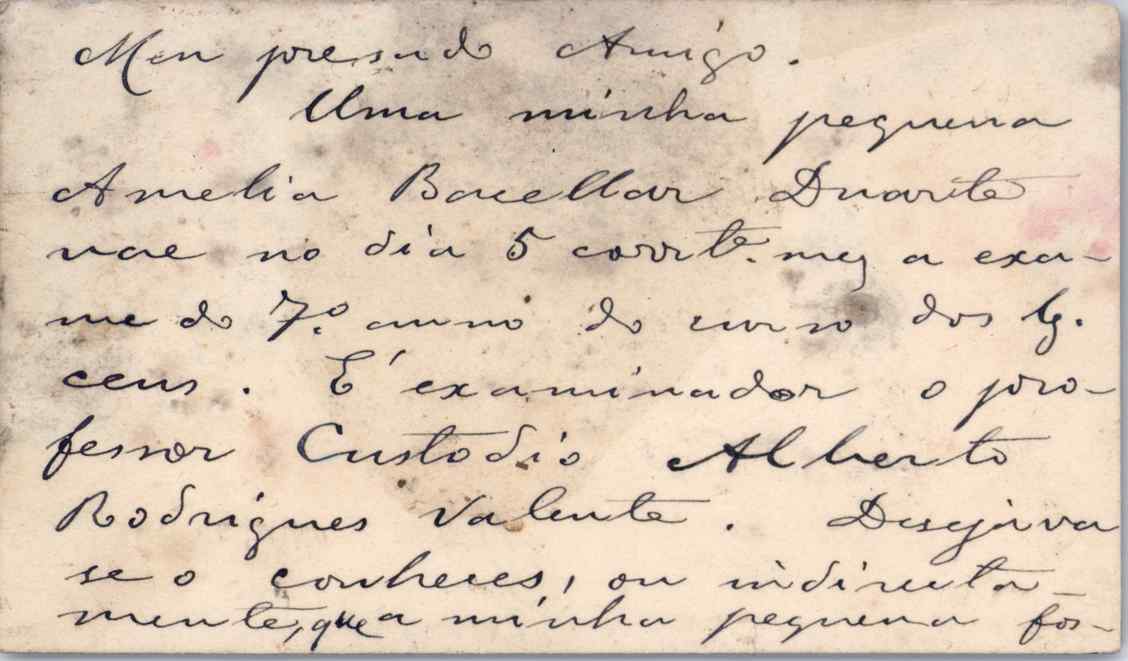 Meu presado Amigo.
Uma minha pequena
Amelia Bacellar Duarte
vae no dia 5 corrte. mez a exa-
me do 7.º anno do curso dos ly-
ceus. É examinador o pro-
fessor Custodio Alberto
Rodrigues Valente. Desejava
se o conheces, ou indirecta-
mente, que a minha pequena fos-